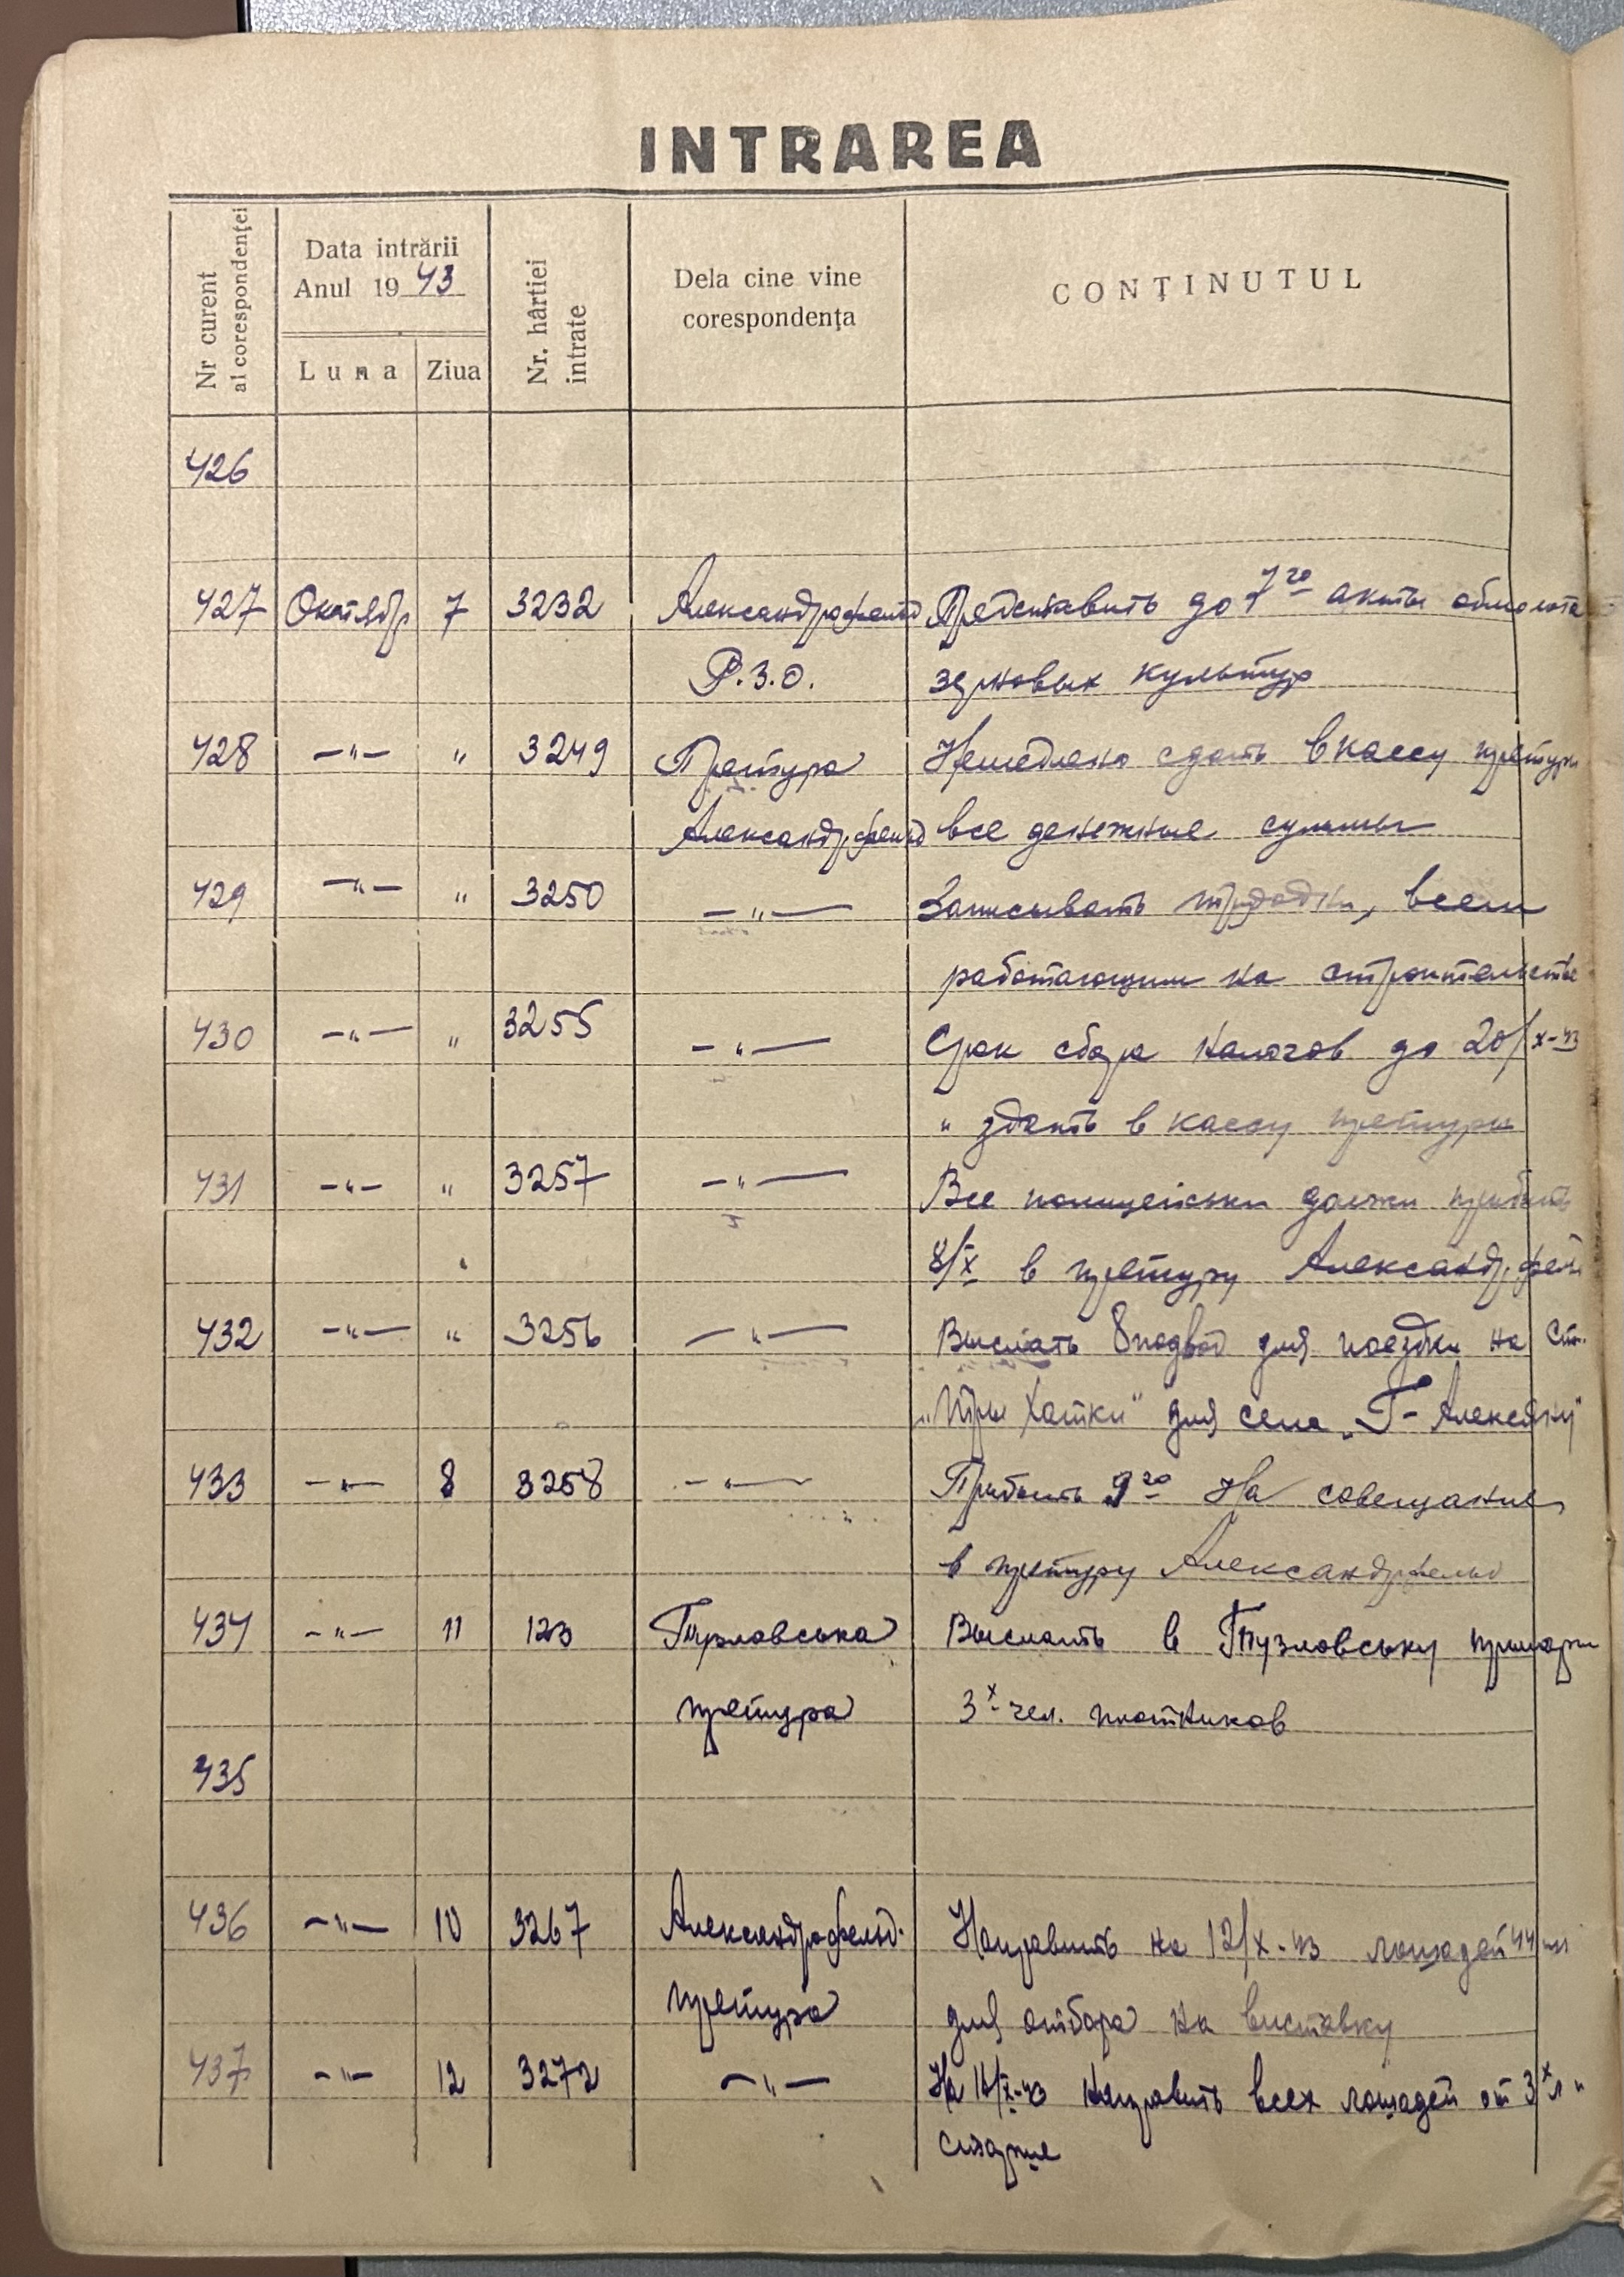 INTRAREA
Nr curent al corespondenței
Data intrării
Anul 1943
Luna Ziua
Nr. hârtiei intrate
Dela cine vine corespondența
CONȚINUTUL
426
427 Октябр 7 3232 Александрофельд Представить до 7го акты обмолота
Р.З.О. зерновых культур
428 —"— " 3249 Претура Немедлено сдать в кассу претуры
Александрфельд все денежные суммы
429 —"— " 3250 —"— Записывать трудодни, всем
работающим на строительстве
430 —"— " 3255 —"— Срок сбора налогов до 20/X-43
" здать в кассу претуры
431 —"— " 3257 —"— Все полицейськи должн прибыть
8/X в претуру Александрфельд
432 —"— " 3256 —"— Выслать 8 подвод для поездки на Ст.
„Три Хатки" для села „Г-Алексяну"
433 —"— 8 3258 —"— Прибыть 9го На совещание
в претуру Александрфельд
434 —"— 11 123 Тузловська Выслать в Тузловську примарю
претура 3х чел. плотников
435
436 —"— 10 3267 Александрофельд. Направить на 12/X-43 лошадей 44 шт
претура для отбора на виставку
437 —"— 12 3272 —"— На 14/X-43 направить всех лошадей от 3х л "
старше